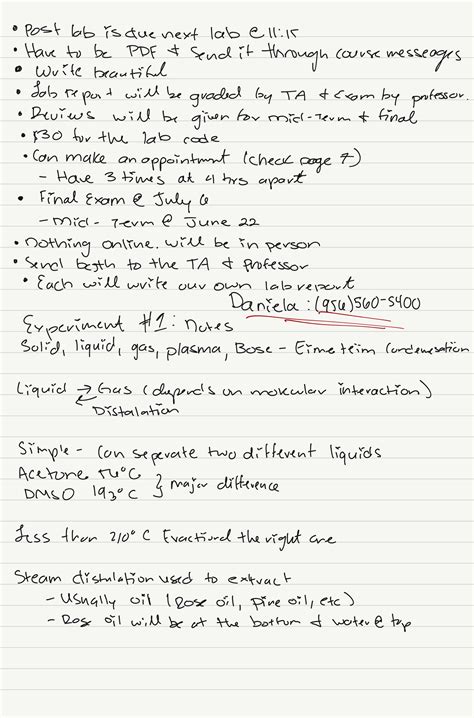 • Post lab is due next lab @ 11:15
• Have to be PDF & Send it through course messeages
• Write beautiful
• Lab report will be graded by TA & Exam by professor.
• Reviews will be given for mid-Term & final
• $30 for the lab code
• Can make an appointment (check page 7)
– Have 3 times at 4 hrs apart
• Final Exam @ July 6
– Mid-Term @ June 22
• Nothing online. Will be in person
• Send both to the TA & Professor
• Each will write our own lab report
Daniela : (956)560-5400
Experiment #1: Notes
Solid, liquid, gas, plasma, Bose-Einstein Condensation
Liquid → Gas (depends on molcular interaction)
Distalation
Simple – Can seperate two different liquids
Acetone 56°C
DMSO 193°C } major difference
Less than 210°C the right one
Steam distulation used to extract
– Usually oil (Rose oil, pine oil, etc)
– Rose oil will be at the bottom & water @ top